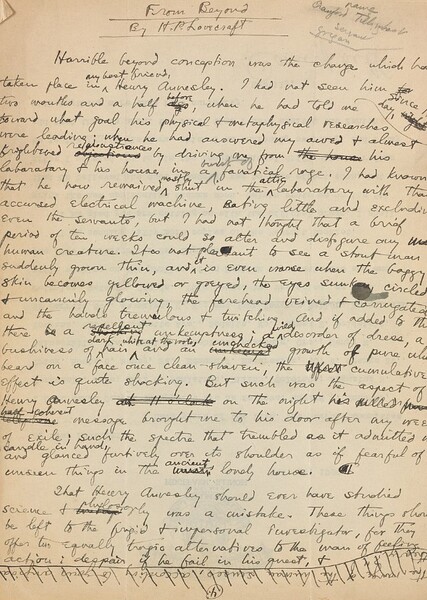 From Beyond
By H. P. Lovecraft
name
Crawford Tillinghast
Horrible beyond conception was the change which had
taken place in my best friend, Henry Annesley. I had not seen him since
two months and a half before, when he had told me
toward what goal his physical & metaphysical researches
were leading; when he had answered my awed & almost
frightened remonstrances by driving me from his
laboratory & his house in a burst of fanatical rage. I had known
that he now remained mostly shut in the attic laboratory with that
accursed electrical machine, eating little and excluding
even the servants, but I had not thought that a brief
period of ten weeks could so alter and disfigure any
human creature. It is not pleasant to see a stout man
suddenly grown thin, and it is even worse when the baggy
skin becomes yellowed or greyed, the eyes sunken, circled
& uncannily glowing, the forehead veined & corrugated
and the hands tremulous & twitching. And if added to th
there be a repellent unkemptness; a wild disorder of dress, a
bushiness of dark hair white at the roots and an unchecked growth of pure white
beard on a face once clean-shaven, the cumulative
effect is quite shocking. But such was the aspect of
Henry Annesley on the night his
half-coherent message brought me to his door after my weeks
of exile; such the spectre that trembled as it admitted me
candle in hand and glanced furtively over its shoulder as if fearful of
unseen things in the ancient, lonely house.
That Henry Annesley should ever have studied
science & philosophy was a mistake. These things should
be left to the frigid & impersonal investigator, for they
offer two equally tragic alternatives to the man of feeling
action; despair if he fail in his quest, &